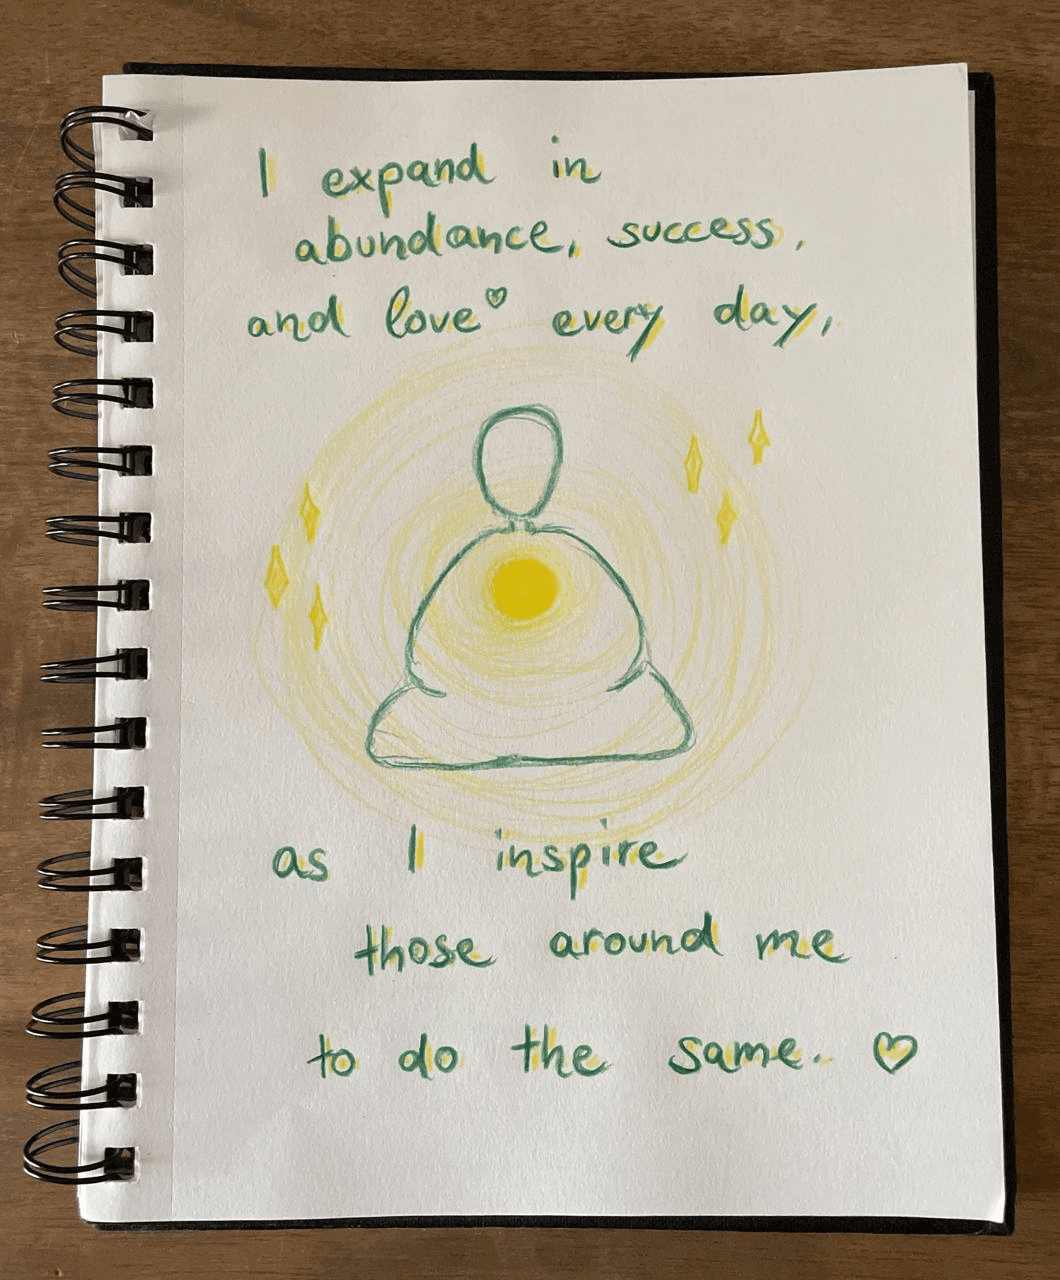 I expand in
abundance, success,
and love♡ every day,
as I inspire
those around me
to do the same. ♡